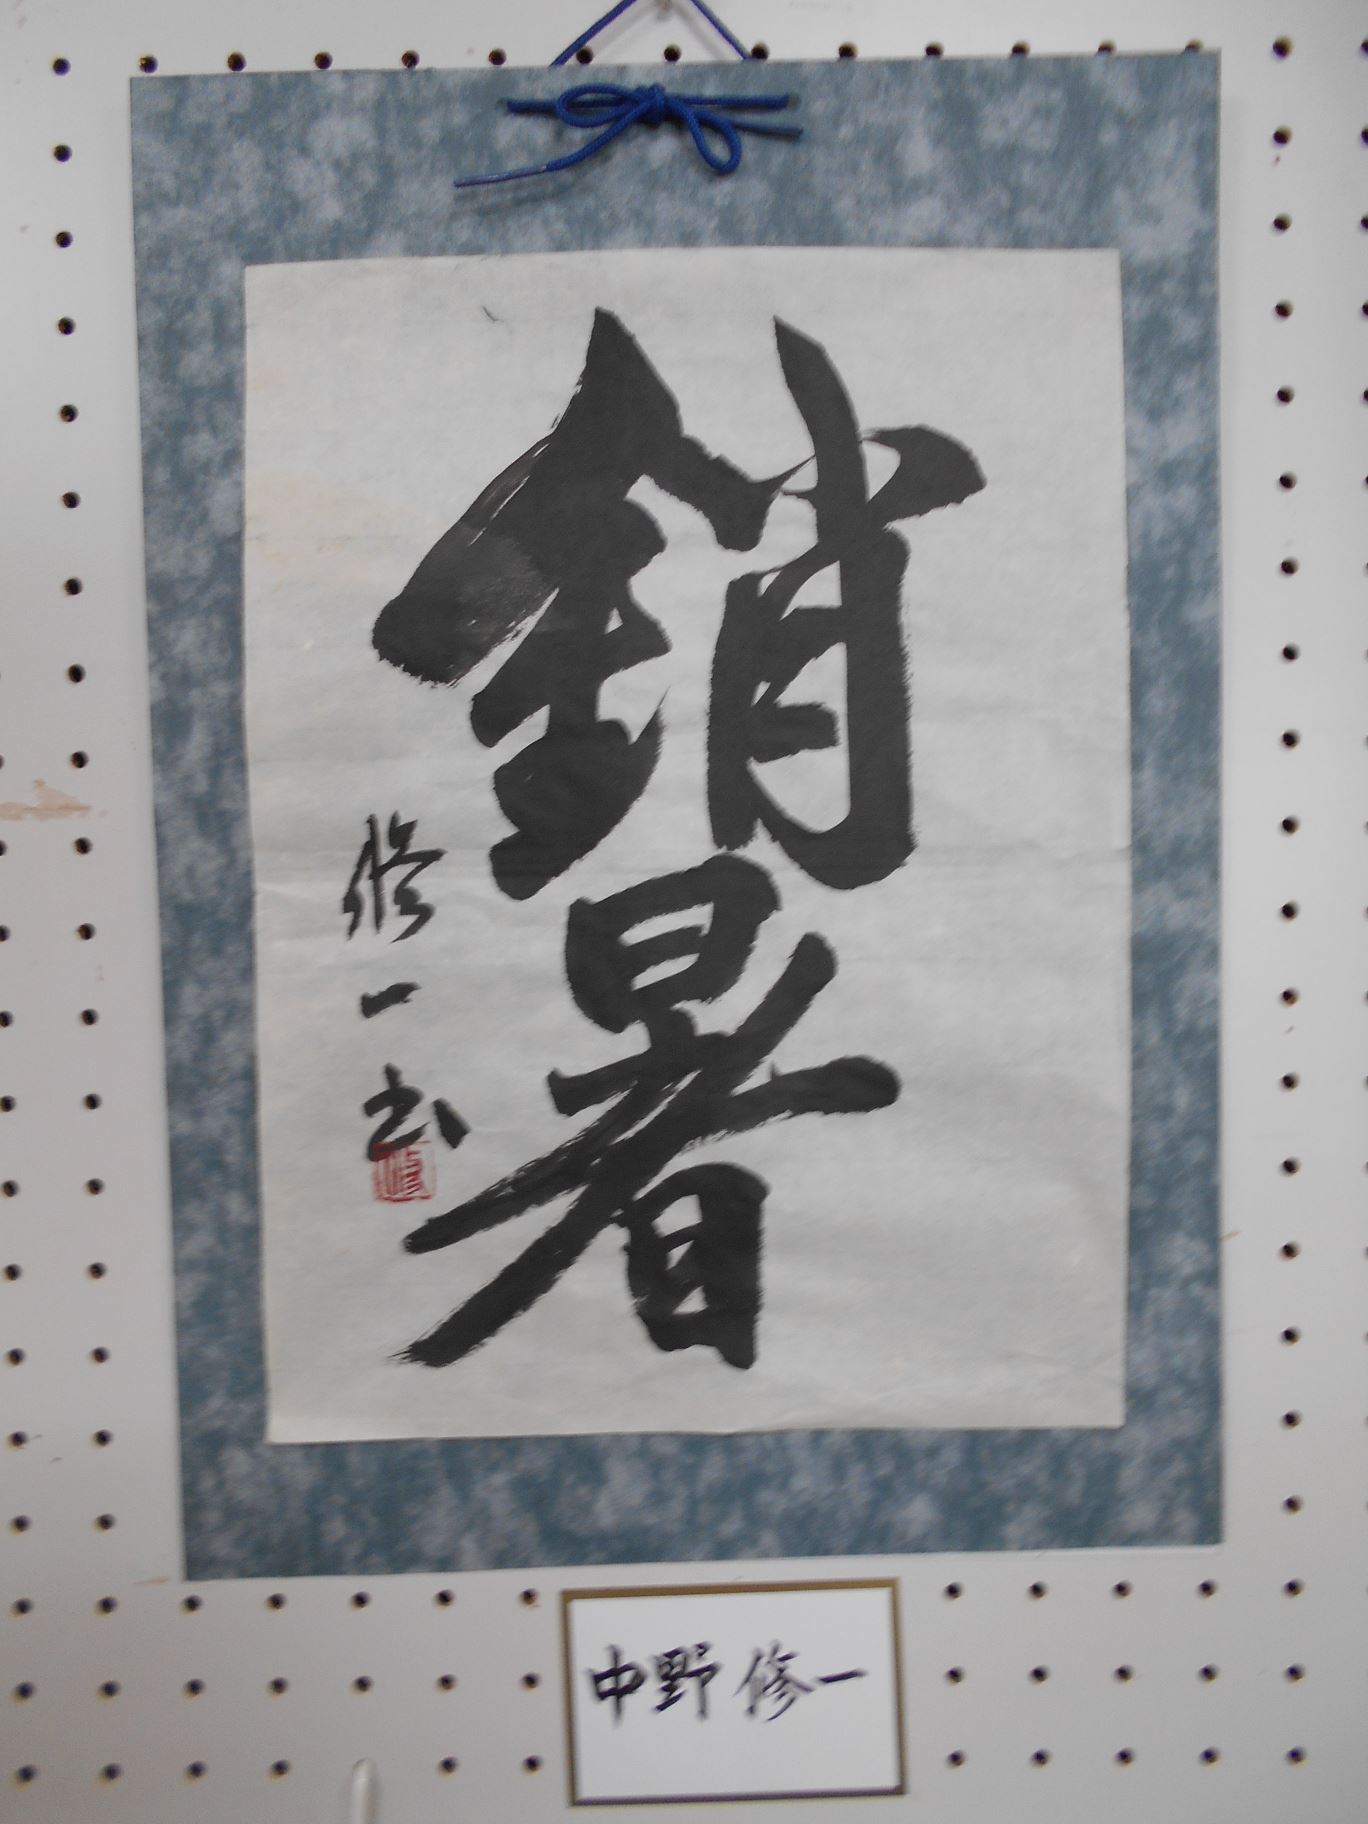 銷暑
修一书
中野修一